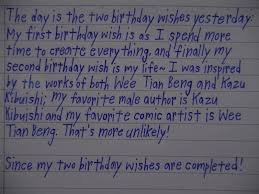 The day is the two birthday wishes yesterday:
My first birthday wish is as I spend more
time to create everything, and finally my
second birthday wish is my life~ I was inspired
by the works of both Wee Tian Beng and Kazu
Kibuishi; my favorite male author is Kazu
Kibuishi and my favorite comic artist is Wee
Tian Beng. That's more unlikely!
Since my two birthday wishes are completed!